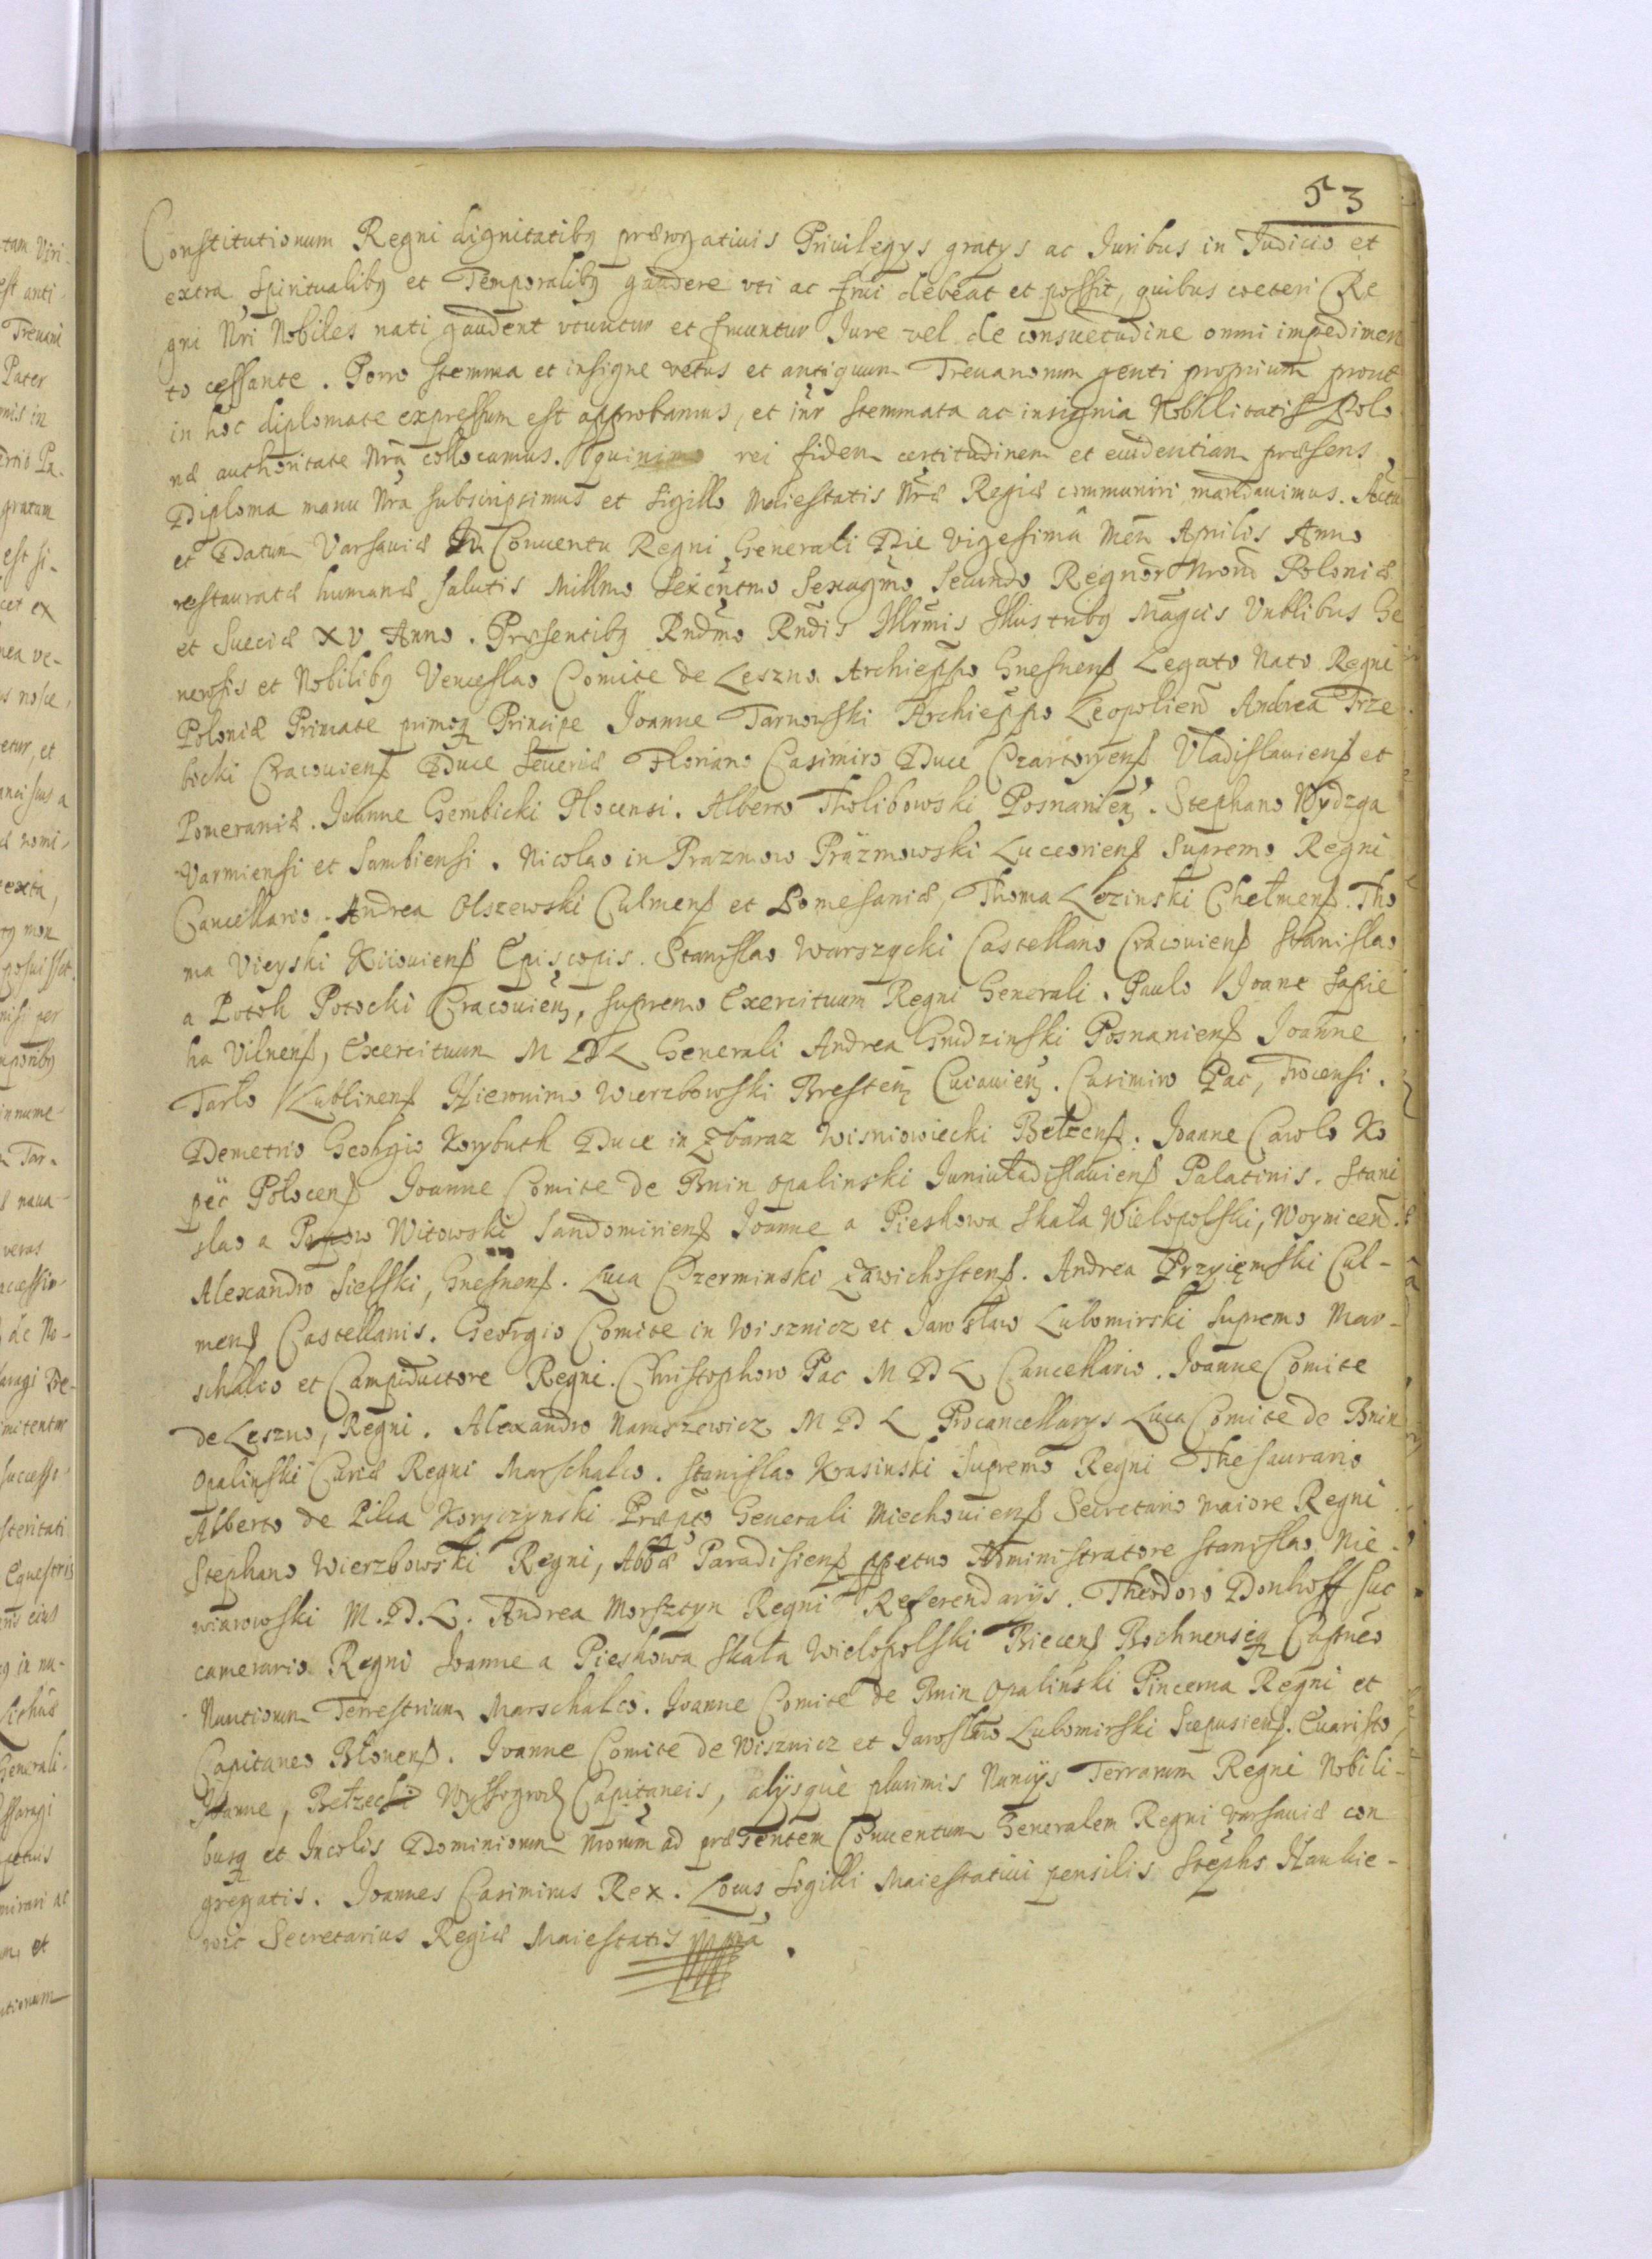 53
Constitutionum Regni dignitatibq prærogatiuis Priuilegys gratys ac Iuribus in Iudicio et
extra Spiritualibq et Temporalibq gaudere vti ac frui debeat et possit, quibus cœteri Re
gni Nri Nobiles nati gaudent vtuntur et fruuntur Iure vel de consuetudine omni impedimen
to cessante. Porro stemma et insigne vetus et antiquum Treuanorum genti proprium prout
in hoc diplomate expressum est approbamus, et inr stemmata ac insignia Nobilitatis Polo
næ authoritate Nra collocamus. rei fidem certitudinem et euidentiam præsens
Diploma manu Nra subscripsimus et Sigillo Maiestatis Nræ Regiæ communiri mandauimus. Actu
et Datum Varsauiæ In Conuentu Regni Generali Die vigesimâ Men Aprilis Anno
restauratæ humanæ salutis Millmo Sexcntmo Sexagmo Secundo Regnor Nrom Poloniæ
et Sueciæ XV Anno. Præsentibq Rndmo Rndis Illrmis Illustribq Magcis Vnblibus Ge
nerosis et Nobilibq Venceslao Comite de Leszno Archieppo Gnesnens Legato Nato Regni
Poloniæ Primate primoq Principe Joanne Tarnowski Archieppo Leopolien Andrea Trze
bicki Cracouiens Duce Seueriæ Floriano Casimiro Duce Czartoryens Vladislauiens et
Pomeraniæ. Joanne Gembicki Plocensi. Alberto Tholibowski Posnanien. Stephano Wydzga
Varmiensi et Sambiensi. Nicolao in Prazmow Prażmowski Luceoriens Supremo Regni
Cancellario. Andrea Olszewski Culmens et Pomesaniæ, Thoma Lezinski Chełmens. Tho
ma Vieyski Kiiouiens Episcopis. Stanislao Warszycki Castellano Cracouiens Stanislao
a Potok Potocki Cracouien, supremo Exercituum Regni Generali. Paulo Joane Sapie
ha Vilnens, Exercituum M D L Generali Andrea Grudzinski Posnaniens Joanne
Tarlo Lublinens Hieronimo Wierzbowski Bresten Cuiauien. Casimiro Pac, Trocensi.
Demetrio Georgio Korybuth Duce in Zbaraz Wisniowiecki Bełzens. Joanne Carolo Ko
peć Polocens Joanne Comite de Bnin Opalinski Juniuładislauiens Palatinis. Stani
slao a Witowski Sandomiriens Joanne a Pieskowa Skała Wielopolski, Woynicen.
Alexandro Sielski, Gnesnens. Luca Czerminski Zawichostens. Andrea Przyięmski Cul-
mens Castellanis. Georgio Comite in Wisznicz et Jarosław Lubomirski Supremo Mar-
schalco et Campiductore Regni. Christophoro Pac M D L Cancellario. Joanne Comite
de Leszno, Regni. Alexandro Naruszewicz M D L Procancellarys Luca Comite de Bnin
Opalinski Curiæ Regni Marschalco. Stanislao Krasinski Supremo Regni Thesaurario
Alberto de Pilca Koryczynski Præpto Generali Miechouiens Secretario Maiore Regni
Stephano Wierzbowski Regni, Abbæ Paradisiens ppetuo Administratore Stanislao Nie-
wiarowski M. D. L. Andrea Morsztyn Regni Referendarÿs. Theodoro Donhoff Suc
camerario Regni Joanne a Pieskowa Skała Wielopolski Biecens Bochnensiq Capneo
Nuntiorum Terrestrium Marschalco. Joanne Comite de Bnin Opalinski Pincerna Regni et
Capitaneo Błonens. Joanne Comite de Wisznicz et Jarosław Lubomirski Scepusiens. Euaristo
Joanne, Bełzecki Wyssogrod Capitaneis, alÿsque plurimis Nuncÿs Terrarum Regni Nobili-
busq et Incolis Dominiorum Nrorum ad præsentem Conuentum Generalem Regni Varsauiæ con
gregatis. Joannes Casimirus Rex. Locus Sigilli Maiestatiui pensilis Stephs Hankie-
wic Secretarius Regiæ Maiestatis mpa.